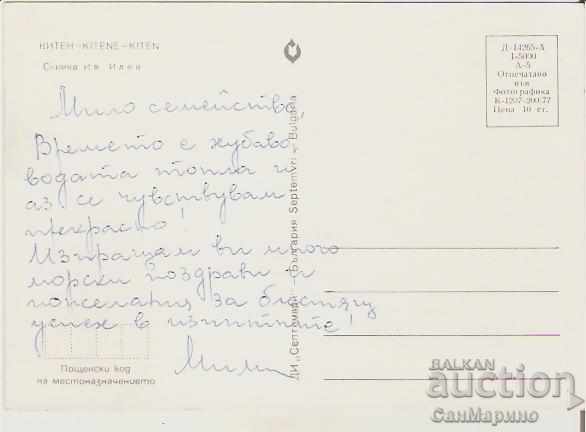 КИТЕН – KITENE – KITEN
Снимка Ив. Илев
Мило семейство,
Времето е хубаво,
водата топла и
аз се чувствувам
прекрасно!
Изпращам ви много
морски поздрави и
пожелания за блестящ
успех в изпитите!
Мими
Пощенски код
на местоназначението
ДИ „Септември" — България Septemvri — Bulgaria
Д-14265-А
I-5000
А-5
Отпечатано
във
Фотографика
К-1207-200/77
Цена 10 ст.
BALKAN
auction
СанМарино